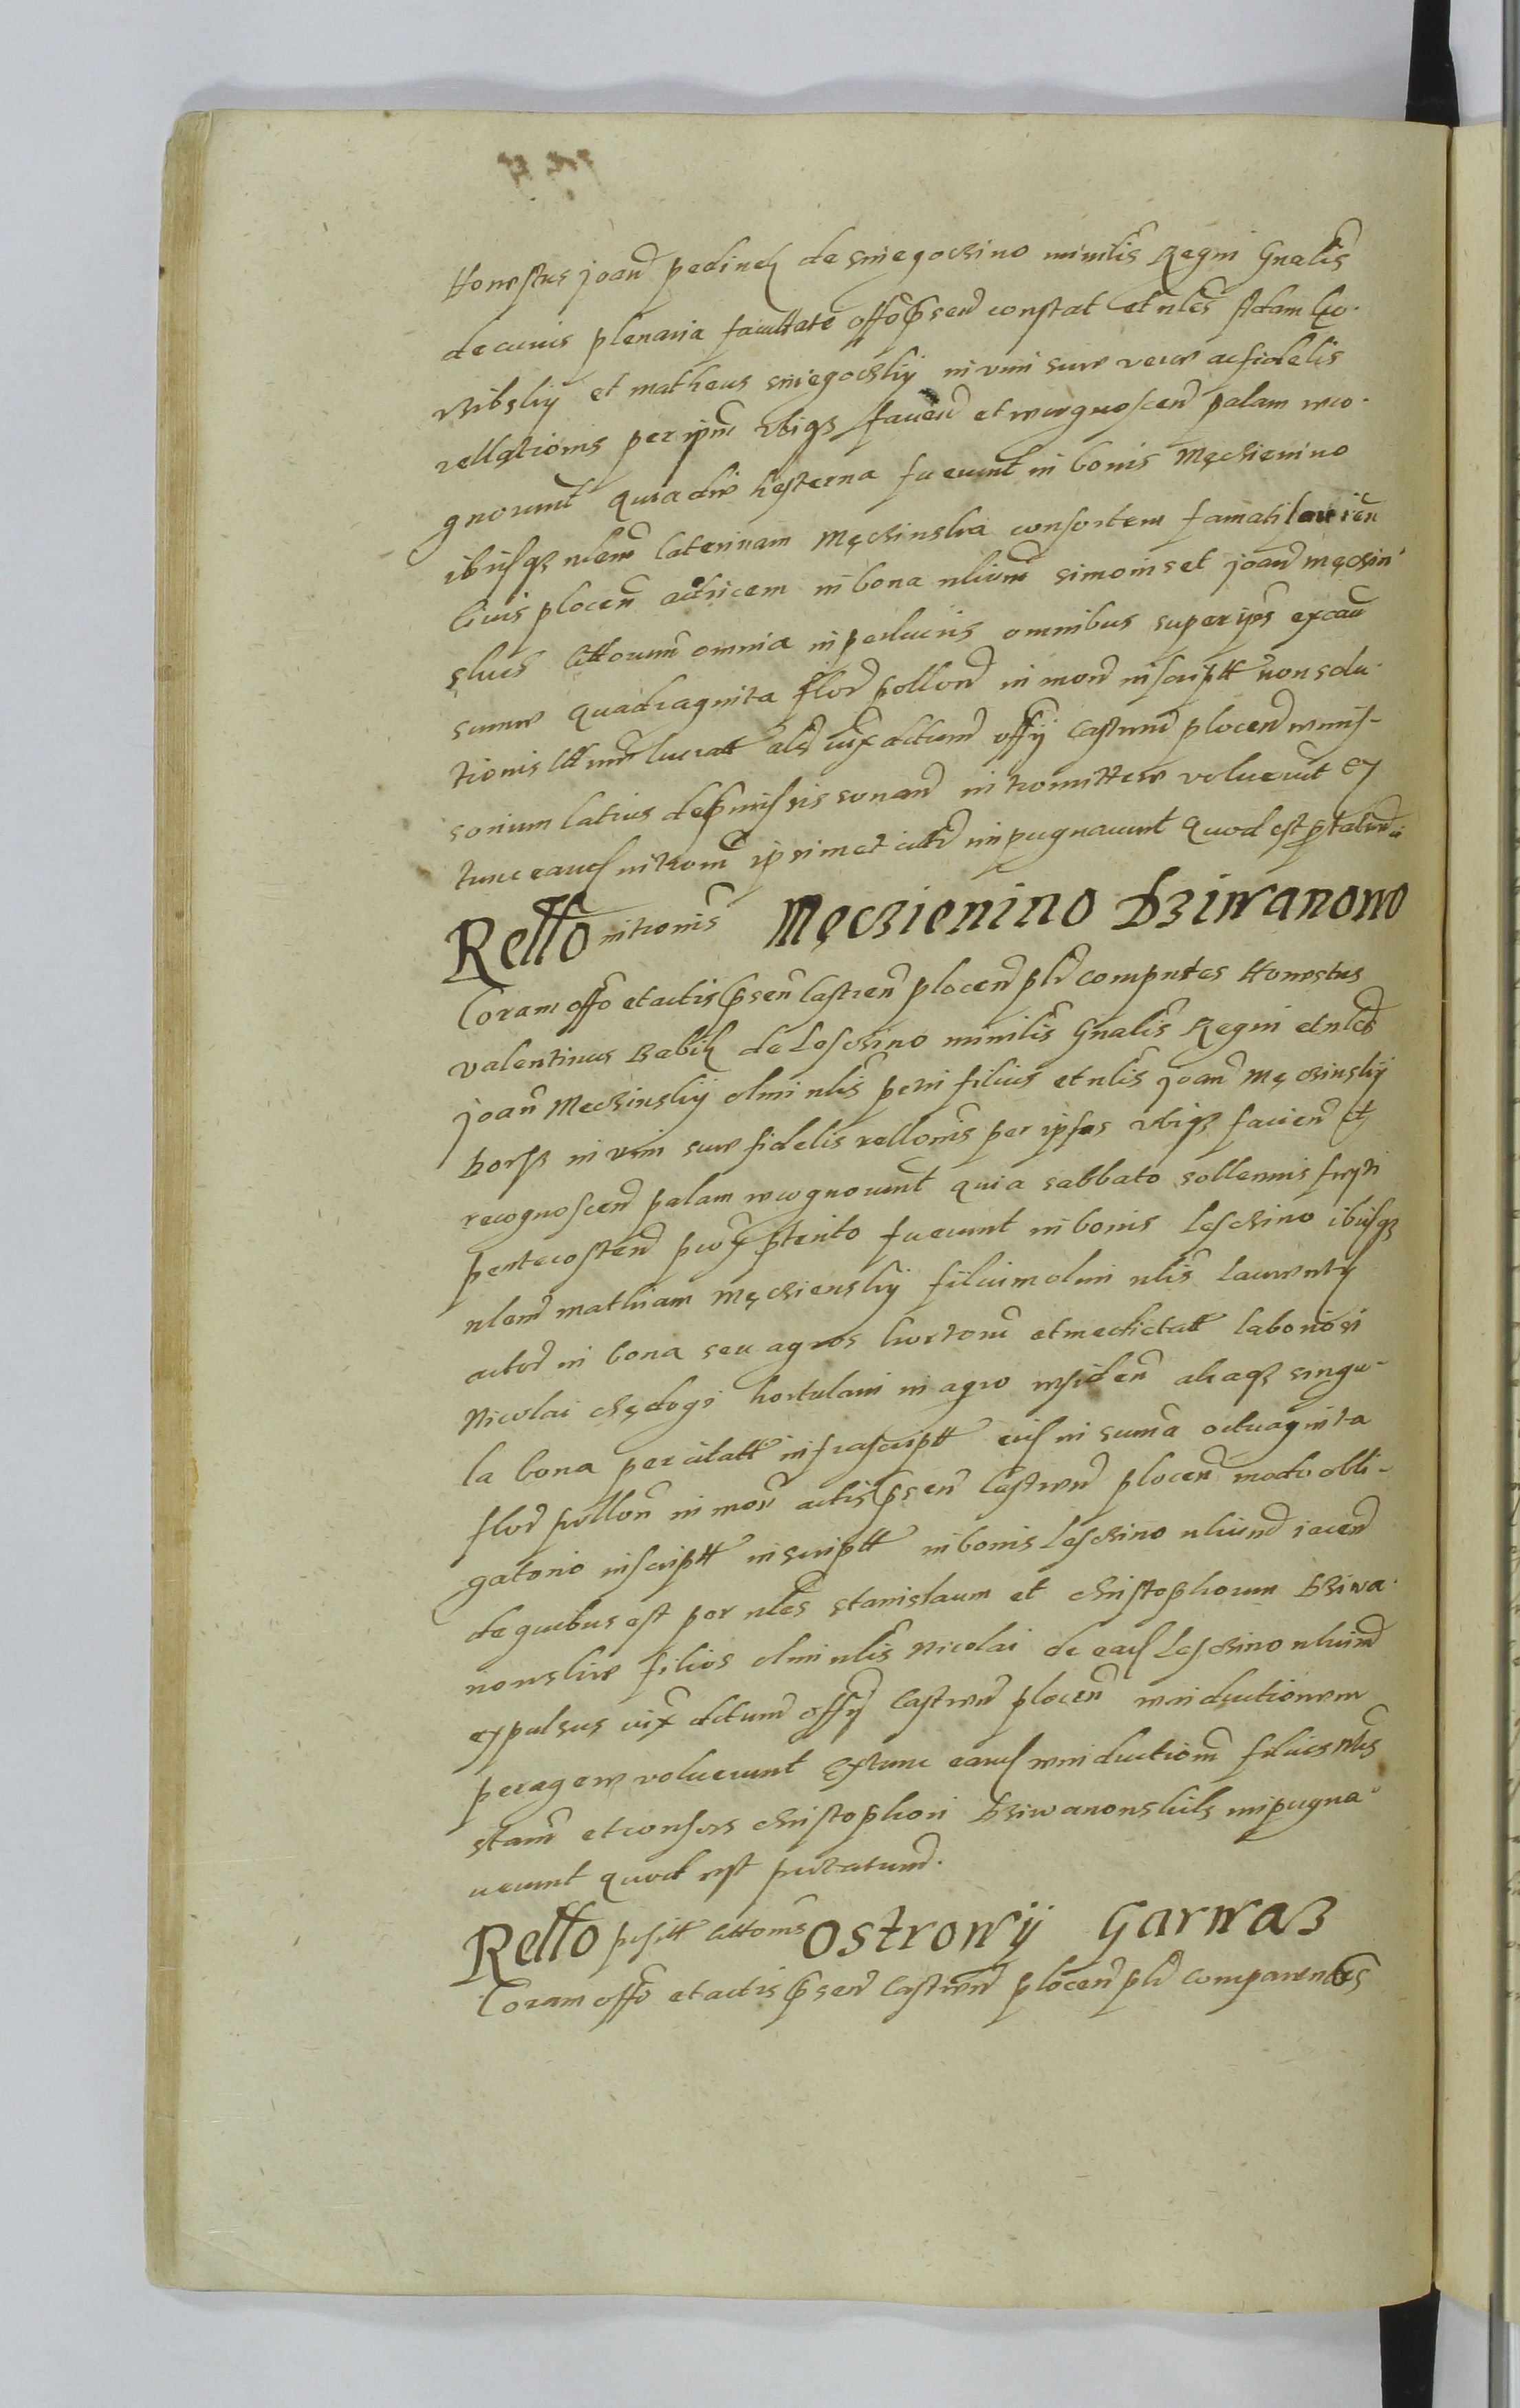 Honestus joan̄ pedinek de sniegoczino minilis Regni Gnalis
de cuius plenaria facultate offo p̄sen constat et nles Adam Go
rzibskij et matheus sniegoczkij in vim sure vere ac fidelis
rellationis per ipm vbiqz faciend et recognoscend palam reco
gnorunt quia die hesterna fuerunt in bonis Męczienino
ibiq3 nlem Caterinam Męczinska consortem famati
Ciuis plocen actricem in bona nlium simonis et joan męczin
skich Cittorum omnia in perlucris omnibus super ipos
summe quadraginta flor pollon in mon inscriptt non solu
tionis lucratt als iux dictum offij Castren plocen remis
sorium latius de p̄missis sonan intromittere voluerunt Et
tunc eand introm ipsimet citti impugnauerunt quod est p̄tatum
Rello intronis Męczienino Dziwanowo
Coram offo et actis p̄sen Castren plocen plr computes Honestus
valentinus Babik de Lesczino minilis Gnalis Regni et nles
joan Meczinskij olim nlis petri filius et nlis joan Męczinskij
borsz in vim sure fidelis rellonis per ipsos vbiqz facien et
recognoscen palam recognouerunt quia sabbato sollennis festi
pentecosten prox ptrito fuerunt in bonis Lesczino ibiqz
nlem mathiam Męczienskij filium olim nlis Laurentij
actor in bona seu agros hortom et medietatt laboriosi
Nicolai chędogi hortulani in agro residen aliaqz singu-
la bona per citatt infrascriptt eius in summa octuaginta
flor pollon in mon actis p̄sen Castren plocen modo obli-
gatorio inscriptt inscriptt in bonis Lesczino nlium iacen
de quibus est per nles stanislaum et christophorum Dziwa
nowskie filios olim nlis Nicolai de ead Lesczino nlium
expulsus iux dictum offij Castren plocen reinductionem
peragere voluerunt Extunc eand reinductiom filius nlis
stani et consors christophori Dziwanowski impugna
uerunt quod est protatum.
Rello posit cittonis Ostrowij Garwaz
Coram offo et actis p̄sen Castren plocen plr comparentes